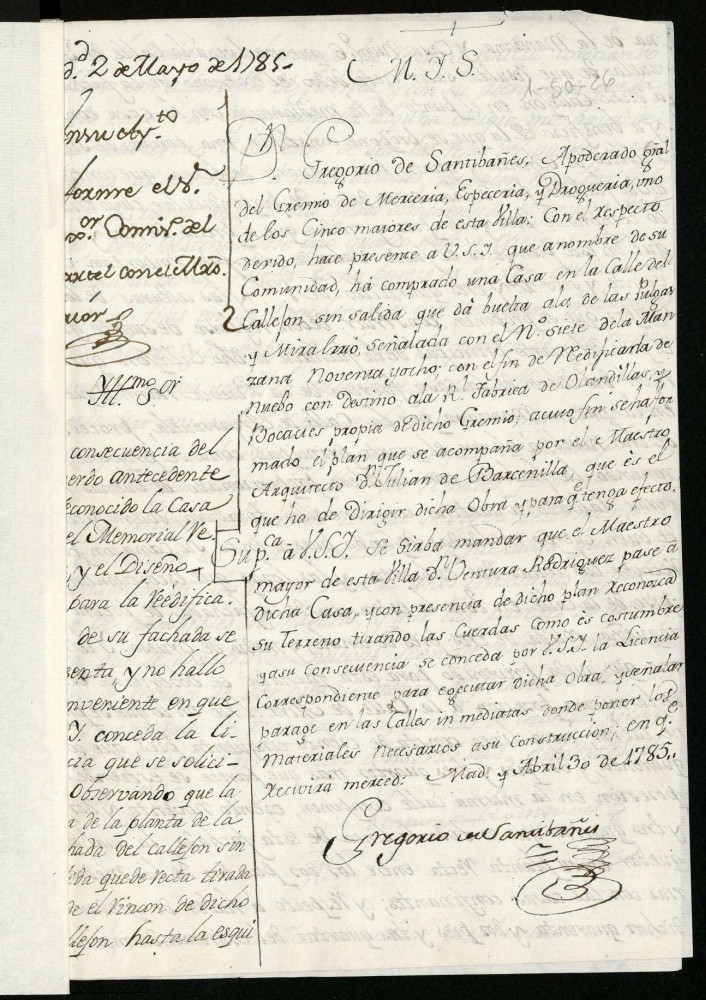 d.d 2 de Mayo de 1785.
M. I. S.
1-50-26
en su Ay.to
Informe el S.r
Comis.o del
Quartel con el Mro.
mayor
Yll.mo S.or
consecuencia del
acuerdo antecedente
reconocido la Casa
el Memorial Ve.
, y el Diseño
para la reedifica.
de su fachada se
, y no hallo
inveniente en que
Y. conceda la li-
cia que se solici-
Observando que la
a de la planta de la
hada del callejon sin
ida quede recta tirada
de el Rincon de dicho
callejon hasta la esqui
D.n Gregorio de Santibañes, Apoderado gñal
del Gremio de Merceria, Especeria, y Drogueria, uno
de los Cinco maiores de esta Villa: Con el respecto
devido, hace presente a V.S.I. que a nombre de su
Comunidad, há comprado una Casa en la Calle del
Callejon sin salida que dá buelta a la de las Pulgas
y Mira el rio, señalada con el N.º siete de la Man
zana Noventa y ocho; con el fin de Redificarla de
nuebo con destino a la R.l Fabrica de Olandillas, y
Bocacies propia de dicho Gremio; a cuio fin se ha for
mado el plan que se acompaña por el Maestro
Arquitecto D.n Julian de Barcenilla, que és el
que ha de dirigir dicha Obra y para q.e tenga efecto.
Sup.ca á V.S.I. Se sirba mandar que el Maestro
mayor de esta Villa D.n Ventura Rodriguez pase á
dicha Casa, y con presencia de dicho plan reconozca
su Terreno tirando las Cuerdas como és costumbre
y a su consecuencia se conceda por V.S.I. la Licencia
Correspondiente para egecutar dicha Obra, y señalar
parage en las Calles inmediatas donde poner los
Materiales necesarios a su Construccion; en q.e
recivirá merced: Mad. y Abril 30 de 1785.
Gregorio de Santibañes